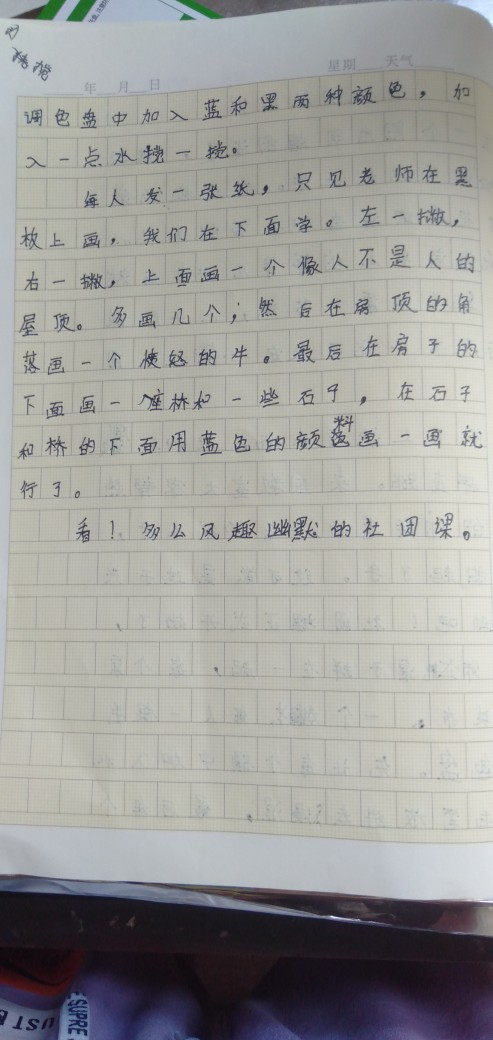 年 月 日 星期 天气
调色盘中加入蓝和黑两种颜色，加
入一点水搅一搅。
每人发一张纸，只见老师在黑
板上画，我们在下面学。左一撇，
右一撇，上面画一个像人不是人的
屋顶。多画几个，然后在房顶的角
落画一个愤怒的牛。最后在房子的
下面画一座桥和一些石子，在石子
和桥的下面用蓝色的颜料画一画就
行了。
看！多么风趣幽默的社团课。